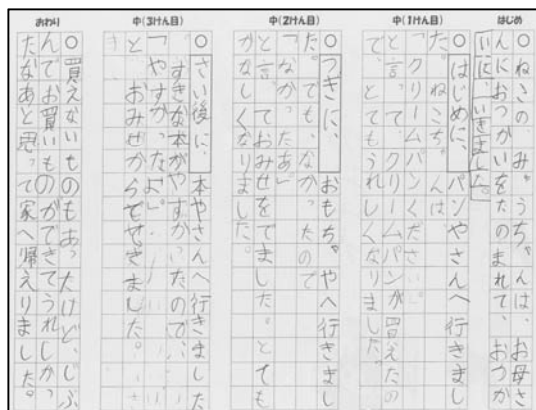 はじめ
○ねこの、みゃうちゃんは、お母さ
んにおつかいをたのまれて、おつか
いに、いきました。
中(1けん目)
○はじめに、パンやさんへ行きまし
た。ねこちゃんは
「クリームパンください。」
と言って、クリームパンが買えたの
で、とてもうれしくなりました。
中(2けん目)
○つぎに、おもちゃやへ行きまし
た。でも、なかったので
「なかったあ」
と言っておみせをでました。とても
かなしくなりました。
中(3けん目)
○さい後に、本やさんへ行きました
。すきな本がやすかったので、
「やすかったよ。」
と おみせからでてきました。
おわり
○買えないものもあったけど、じぶ
んでお買いものができてうれしかっ
たなあと思って家へ帰えりました。